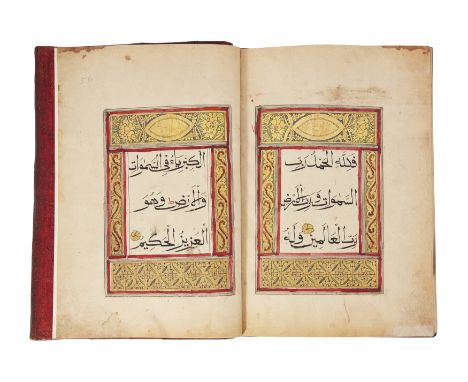 فلله الحمد رب
السموات ورب الارض
رب العالمين وله
الكبرياء في السموات
والارض وهو
العزيز الحكيم